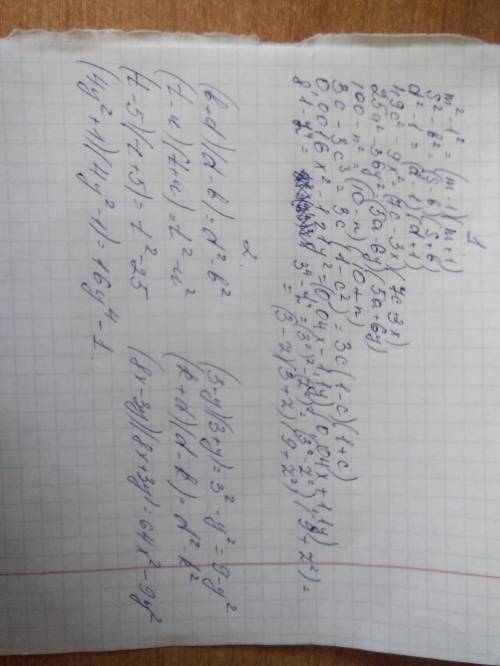 1
m² - 1² = (m - 1)(m + 1)
5² - b² = (5 - b)(5 + b)
d² - 1 = (d - 1)(d + 1)
49c² - 9x² = (7c - 3x)(7c 3x)
25a² - 36y² = (5a - 6y)(5a + 6y)
100 - n² = (10 - n)(10 + n)
3c - 3c³ = 3c(1 - c²) = 3c(1 - c)(1 + c)
0,0016x² - 1,21y² = (0,04x - 1,1y)(0,04x + 1,1y)
81 - z⁴ = 3⁴ - z⁴ = (3²)² - (z²)² = (3² - z²)(9 + z²) =
= (3 - z)(3 + z)(9 + z²)
2.
(b + d)(d - b) = d² - b²
(7 - n)(7 + n) = 7² - n²
(7 - 5)(7 + 5) = 7² - 25
(4y² + 1)(4y² - 1) = 16y⁴ - 1.
(3 - y)(3 + y) = 3² - y² = 9 - y²
(k + d)(d - k) = d² - k²
(8x - 3y)(8x + 3y) = 64x² - 9y²